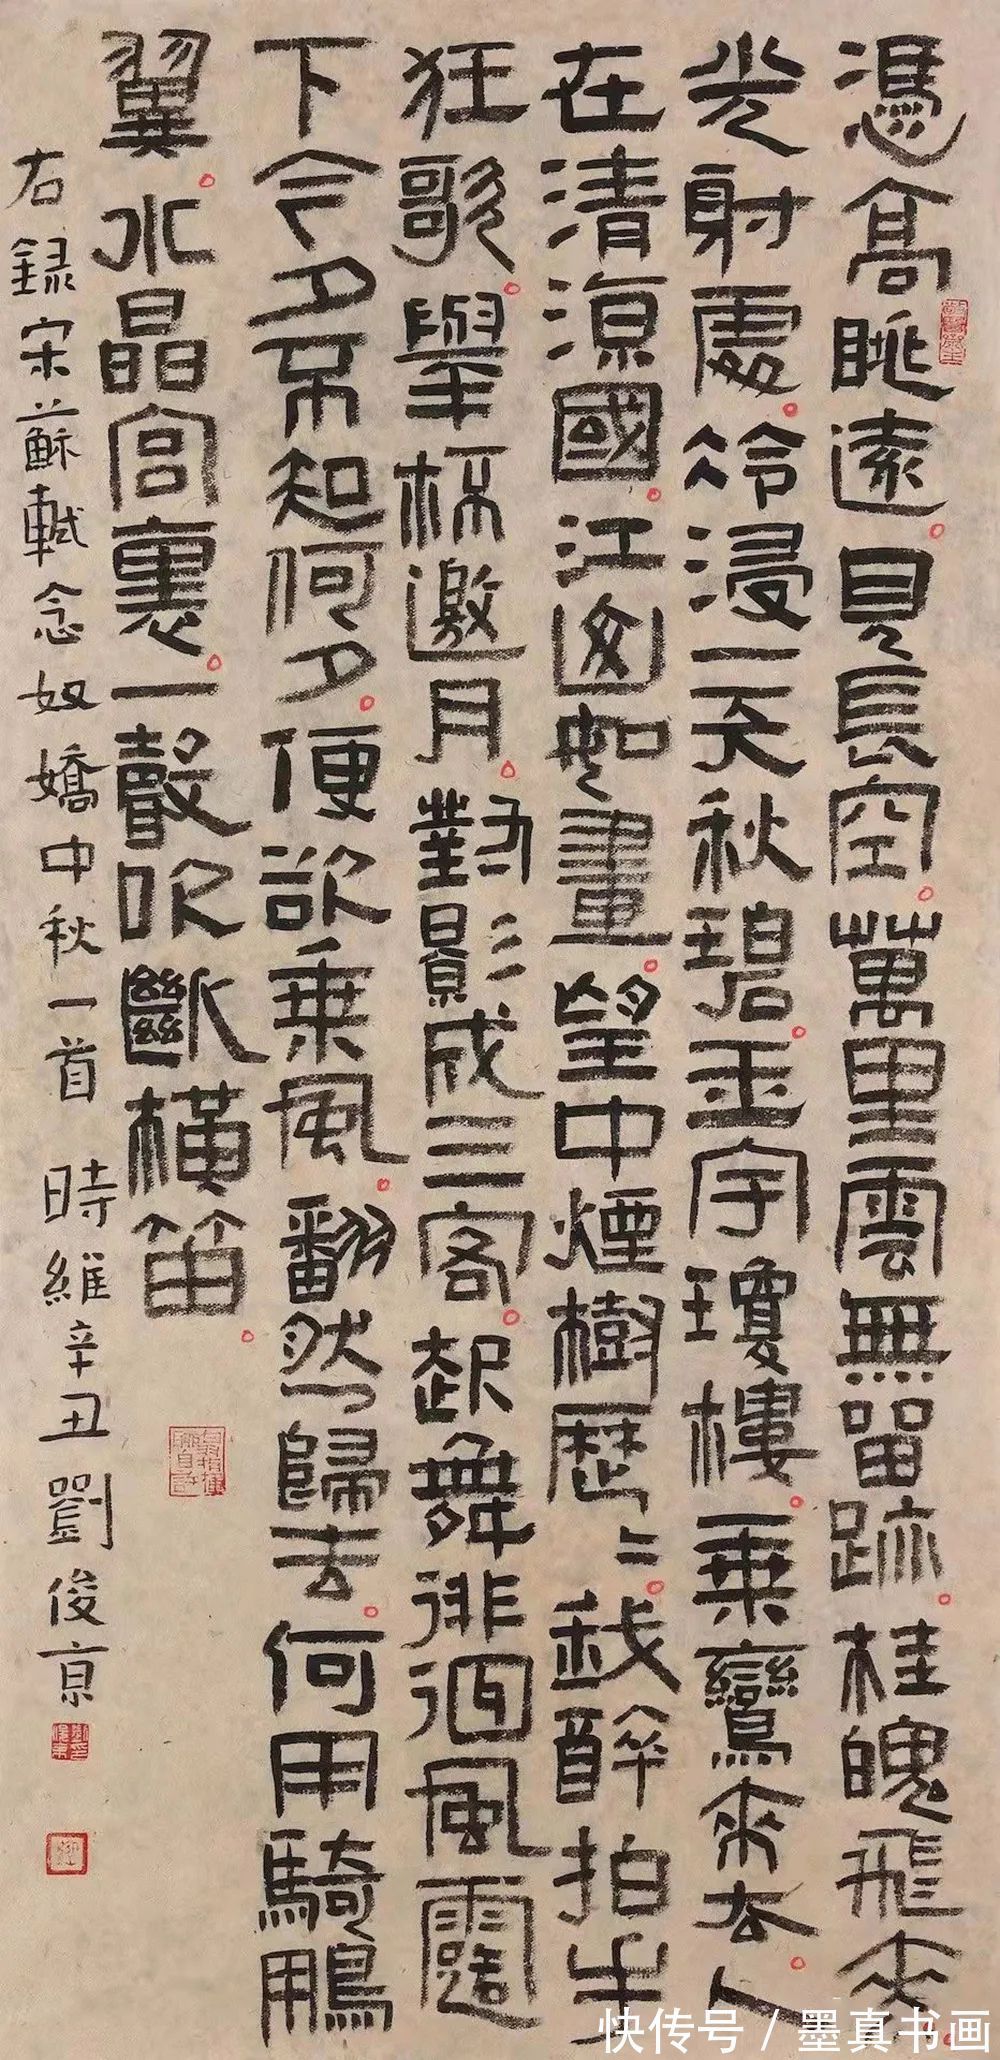 憑高眺遠。見長空。萬里雲無留跡。桂魄飛來。
光射處。冷浸一天秋碧。玉宇瓊樓。乘鸞來去。人
在清涼國。江山如畫。望中煙樹歷〻。我醉拍手
狂歌。舉杯邀月。對影成三客。起舞徘徊風露
下今夕不知何夕。便欲乘風。翻然歸去。何用騎鵬
翼。水晶宮裏。一聲吹斷橫笛。
右録宋蘇軾念奴嬌中秋一首 時維辛丑劉俊京
快传号 / 墨真书画